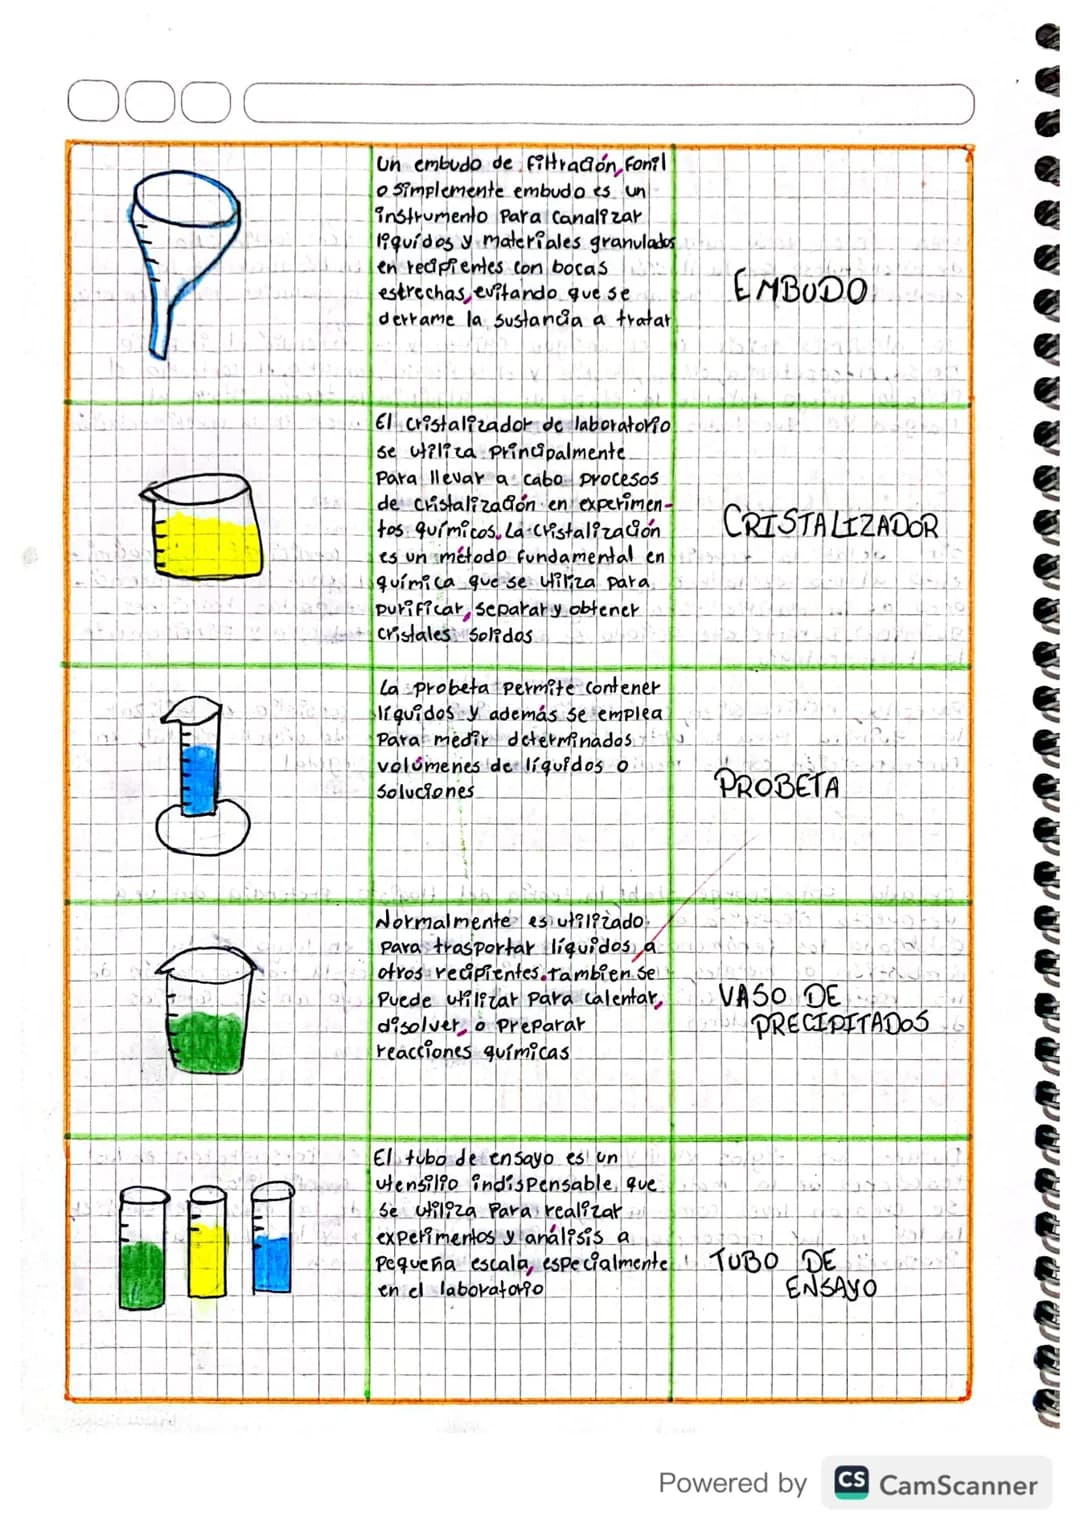 Un embudo de filtración, Fonil
o simplemente embudo es un
instrumento para canalizar
liquídos y materiales granulados
en recipientes con bocas
estrechas, evitando que se
derrame la sustancia a tratar
EMBUDO
El cristalizador de laboratorio
se utiliza principalmente
para llevar a cabo procesos
de cristalización en experimen-
tos químicos. La cristalización
es un método fundamental en
química que se utiliza para
purificar, separar y obtener
cristales solidos
CRISTALIZADOR
La probeta permite contener
líquidos y además se emplea
para medir determinados
volúmenes de líquidos o
soluciones
PROBETA
Normalmente es utilizado
para trasportar líquidos a
otros recipientes. Tambien se
puede utilizar para calentar,
disolver, o preparar
reacciones químicas
VASO DE
PRECIPITADOS
El tubo de ensayo es un
utensilio indispensable que
se utiliza para realizar
experimentos y análisis a
pequeña escala, especialmente
en el laboratorio
TUBO DE
ENSAYO
Powered by CS CamScanner